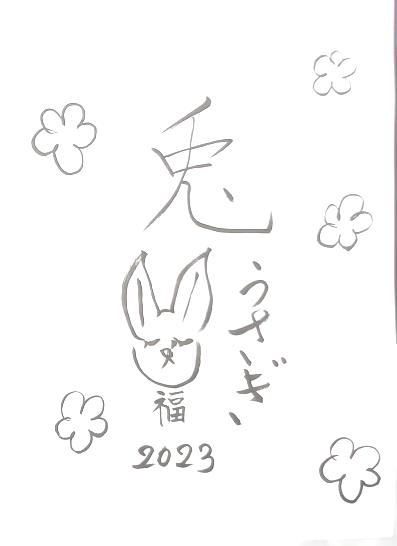 兎
うさぎ
福
2023